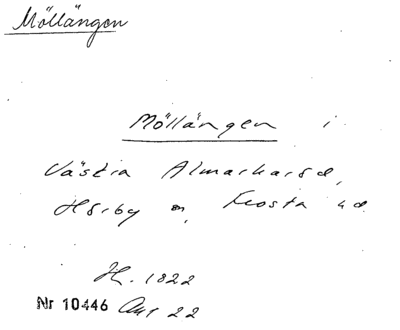 Möllängen
Möllängen i
Västra Almarhargd,
Hörby sn, Frosta hd.
H. 1822
Nr 10446 Avr 22